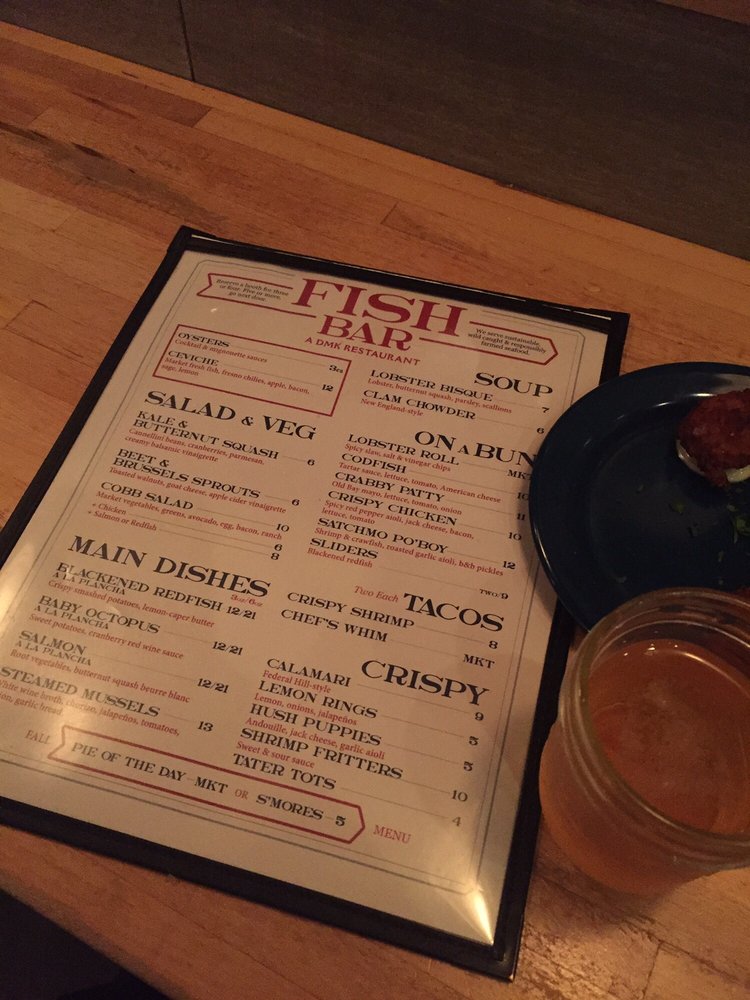 Reserve a booth for three
or four. Five or more,
go next door.
FISH
BAR
A DMK RESTAURANT
We serve sustainable,
wild caught & responsibly
farmed seafood.
OYSTERS 3ea
Cocktail & mignonette sauces
CEVICHE 12
Market fresh fish, fresno chilies, apple, bacon,
sage, lemon
SALAD & VEG
KALE &
BUTTERNUT SQUASH 6
Cannellini beans, cranberries, parmesan,
creamy balsamic vinaigrette
BEET &
BRUSSELS SPROUTS 6
Toasted walnuts, goat cheese, apple cider vinaigrette
COBB SALAD 10
Market vegetables, greens, avocado, egg, bacon, ranch
+ Chicken 6
+ Salmon or Redfish 8
MAIN DISHES
3oz/6oz
BLACKENED REDFISH 12/21
A LA PLANCHA
Crispy smashed potatoes, lemon-caper butter
BABY OCTOPUS 12/21
A LA PLANCHA
Sweet potatoes, cranberry red wine sauce
SALMON 12/21
A LA PLANCHA
Root vegetables, butternut squash beurre blanc
STEAMED MUSSELS 13
White wine broth, chorizo, jalapeños, tomatoes,
garlic bread
SOUP
LOBSTER BISQUE 7
Lobster, butternut squash, parsley, scallions
CLAM CHOWDER 6
New England-style
ON A BUN
LOBSTER ROLL MKT
Spicy slaw, salt & vinegar chips
CODFISH 10
Tartar sauce, lettuce, tomato, American cheese
CRABBY PATTY 11
Old Bay mayo, lettuce, tomato, onion
CRISPY CHICKEN 10
Spicy red pepper aioli, jack cheese, bacon,
lettuce, tomato
SATCHMO PO'BOY 12
Shrimp & crawfish, roasted garlic aioli, b&b pickles
SLIDERS TWO/9
Blackened redfish
Two Each TACOS
CRISPY SHRIMP 8
CHEF'S WHIM MKT
CRISPY
CALAMARI 9
Federal Hill-style
LEMON RINGS 5
Lemon, onions, jalapeños
HUSH PUPPIES 5
Andouille, jack cheese, garlic aioli
SHRIMP FRITTERS 10
Sweet & sour sauce
TATER TOTS 4
FALL
PIE OF THE DAY—MKT OR S'MORES—5
MENU